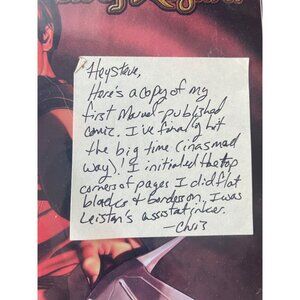 Hey Steve,
Here's a copy of my
first Marvel-published
comic. I've finally hit
the big time (in a small
way)! I initialed the top
corners of pages I did flat
blacks & borders on. I was
Leisten's assistant inker.
—Chris